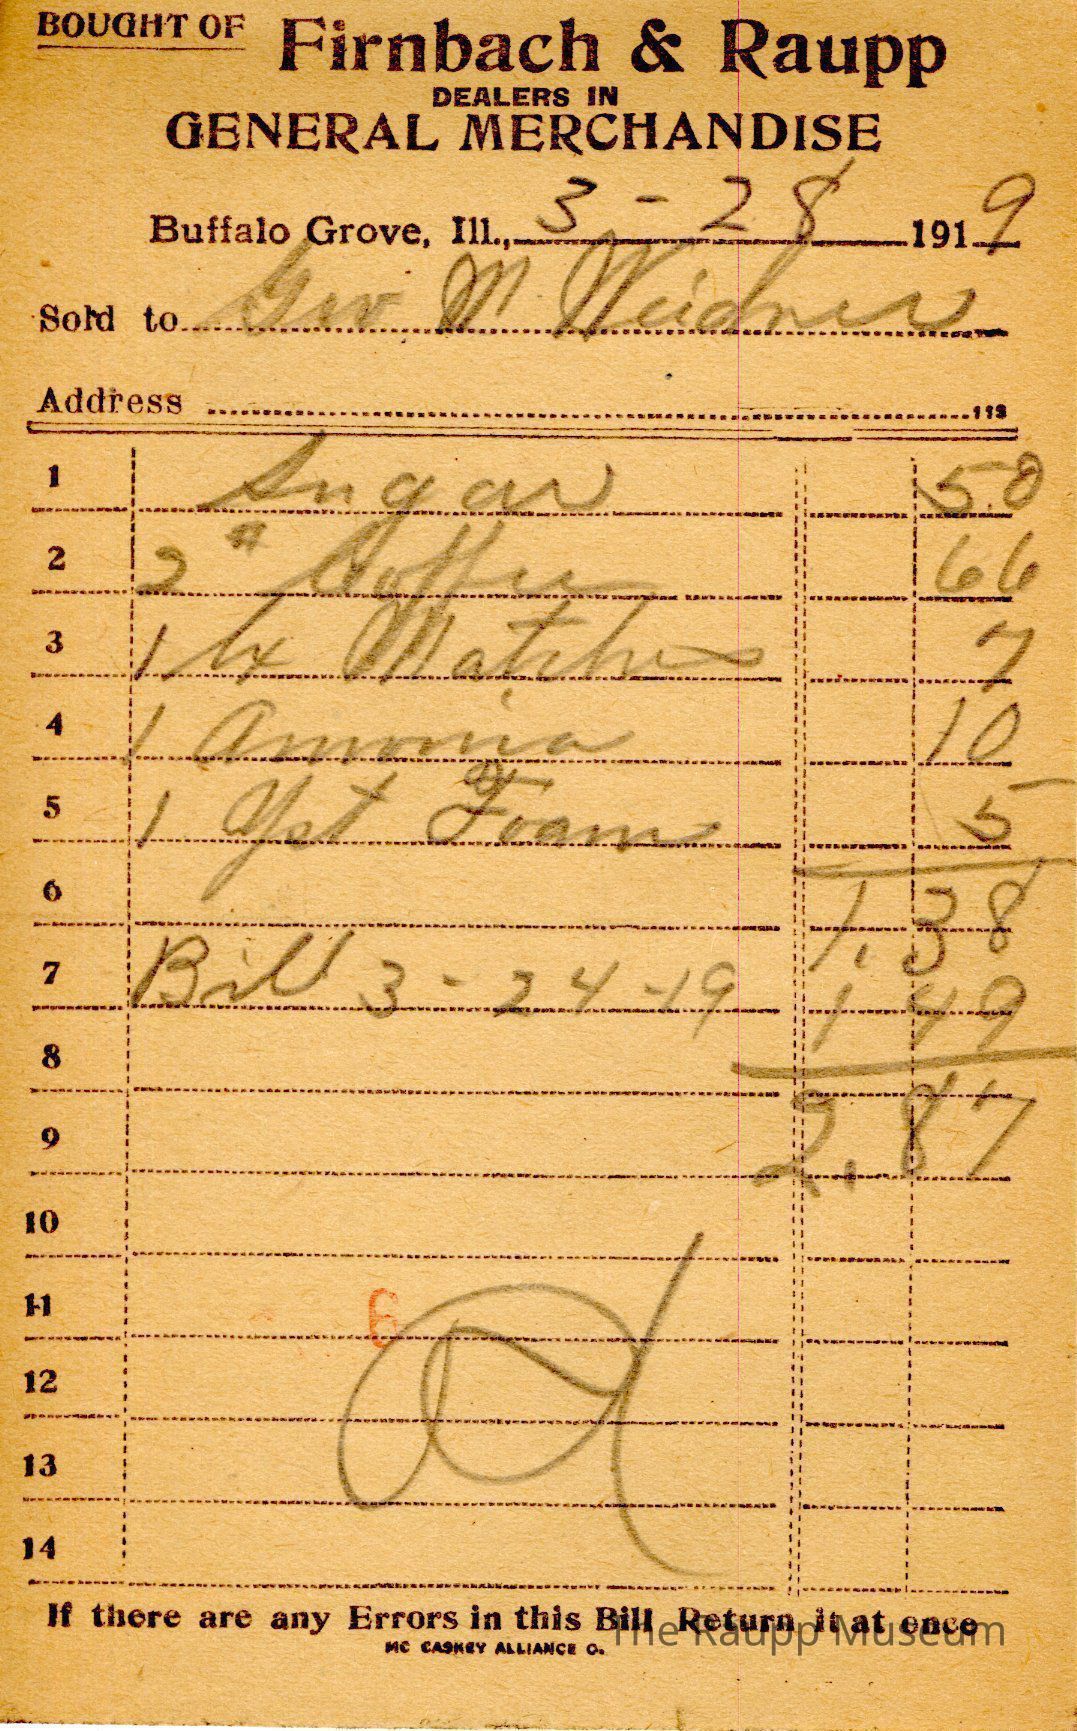 BOUGHT OF Firnbach & Raupp
DEALERS IN
GENERAL MERCHANDISE
Buffalo Grove, Ill., 3 - 28 1919
Sold to Geo M Weidner
Address 113
1 Sugar 50
2 2 " Coffee 66
3 1 bx Matches 7
4 1 Amonia 10
5 1 Yst Foam 5
6 1.38
7 Bill 3-24-19 1 49
8
9 2.87
10
11 6
12
13
14
If there are any Errors in this Bill Return it at once
MC CASKEY ALLIANCE O.
The Raupp Museum